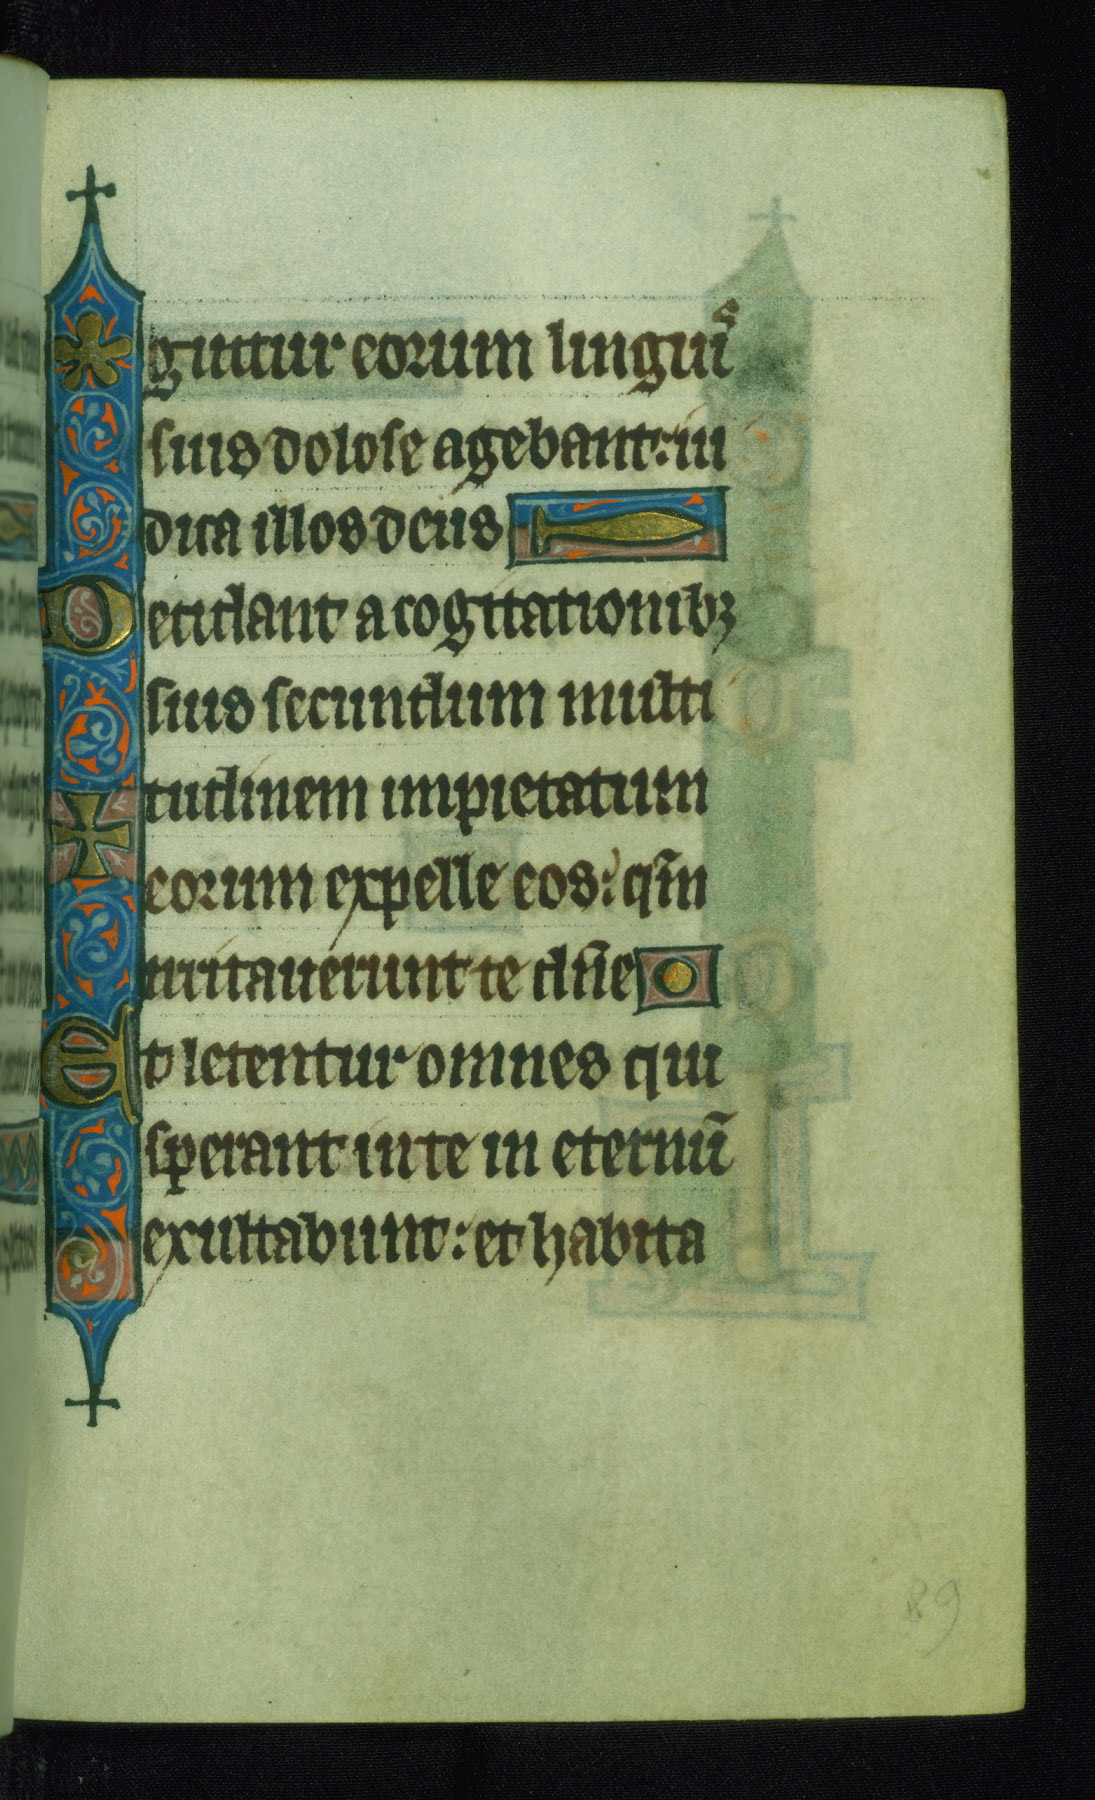 guttur eorum linguis
suis dolose agebant: iu
dica illos deus
Decidant a cogitationibꝫ
suis secundum multi
tudinem impietatum
eorum expelle eos: qm̄
irritauerunt te dn̄e
Et letentur omnes qui
sperant in te in eternū
exultabunt: et habita
89